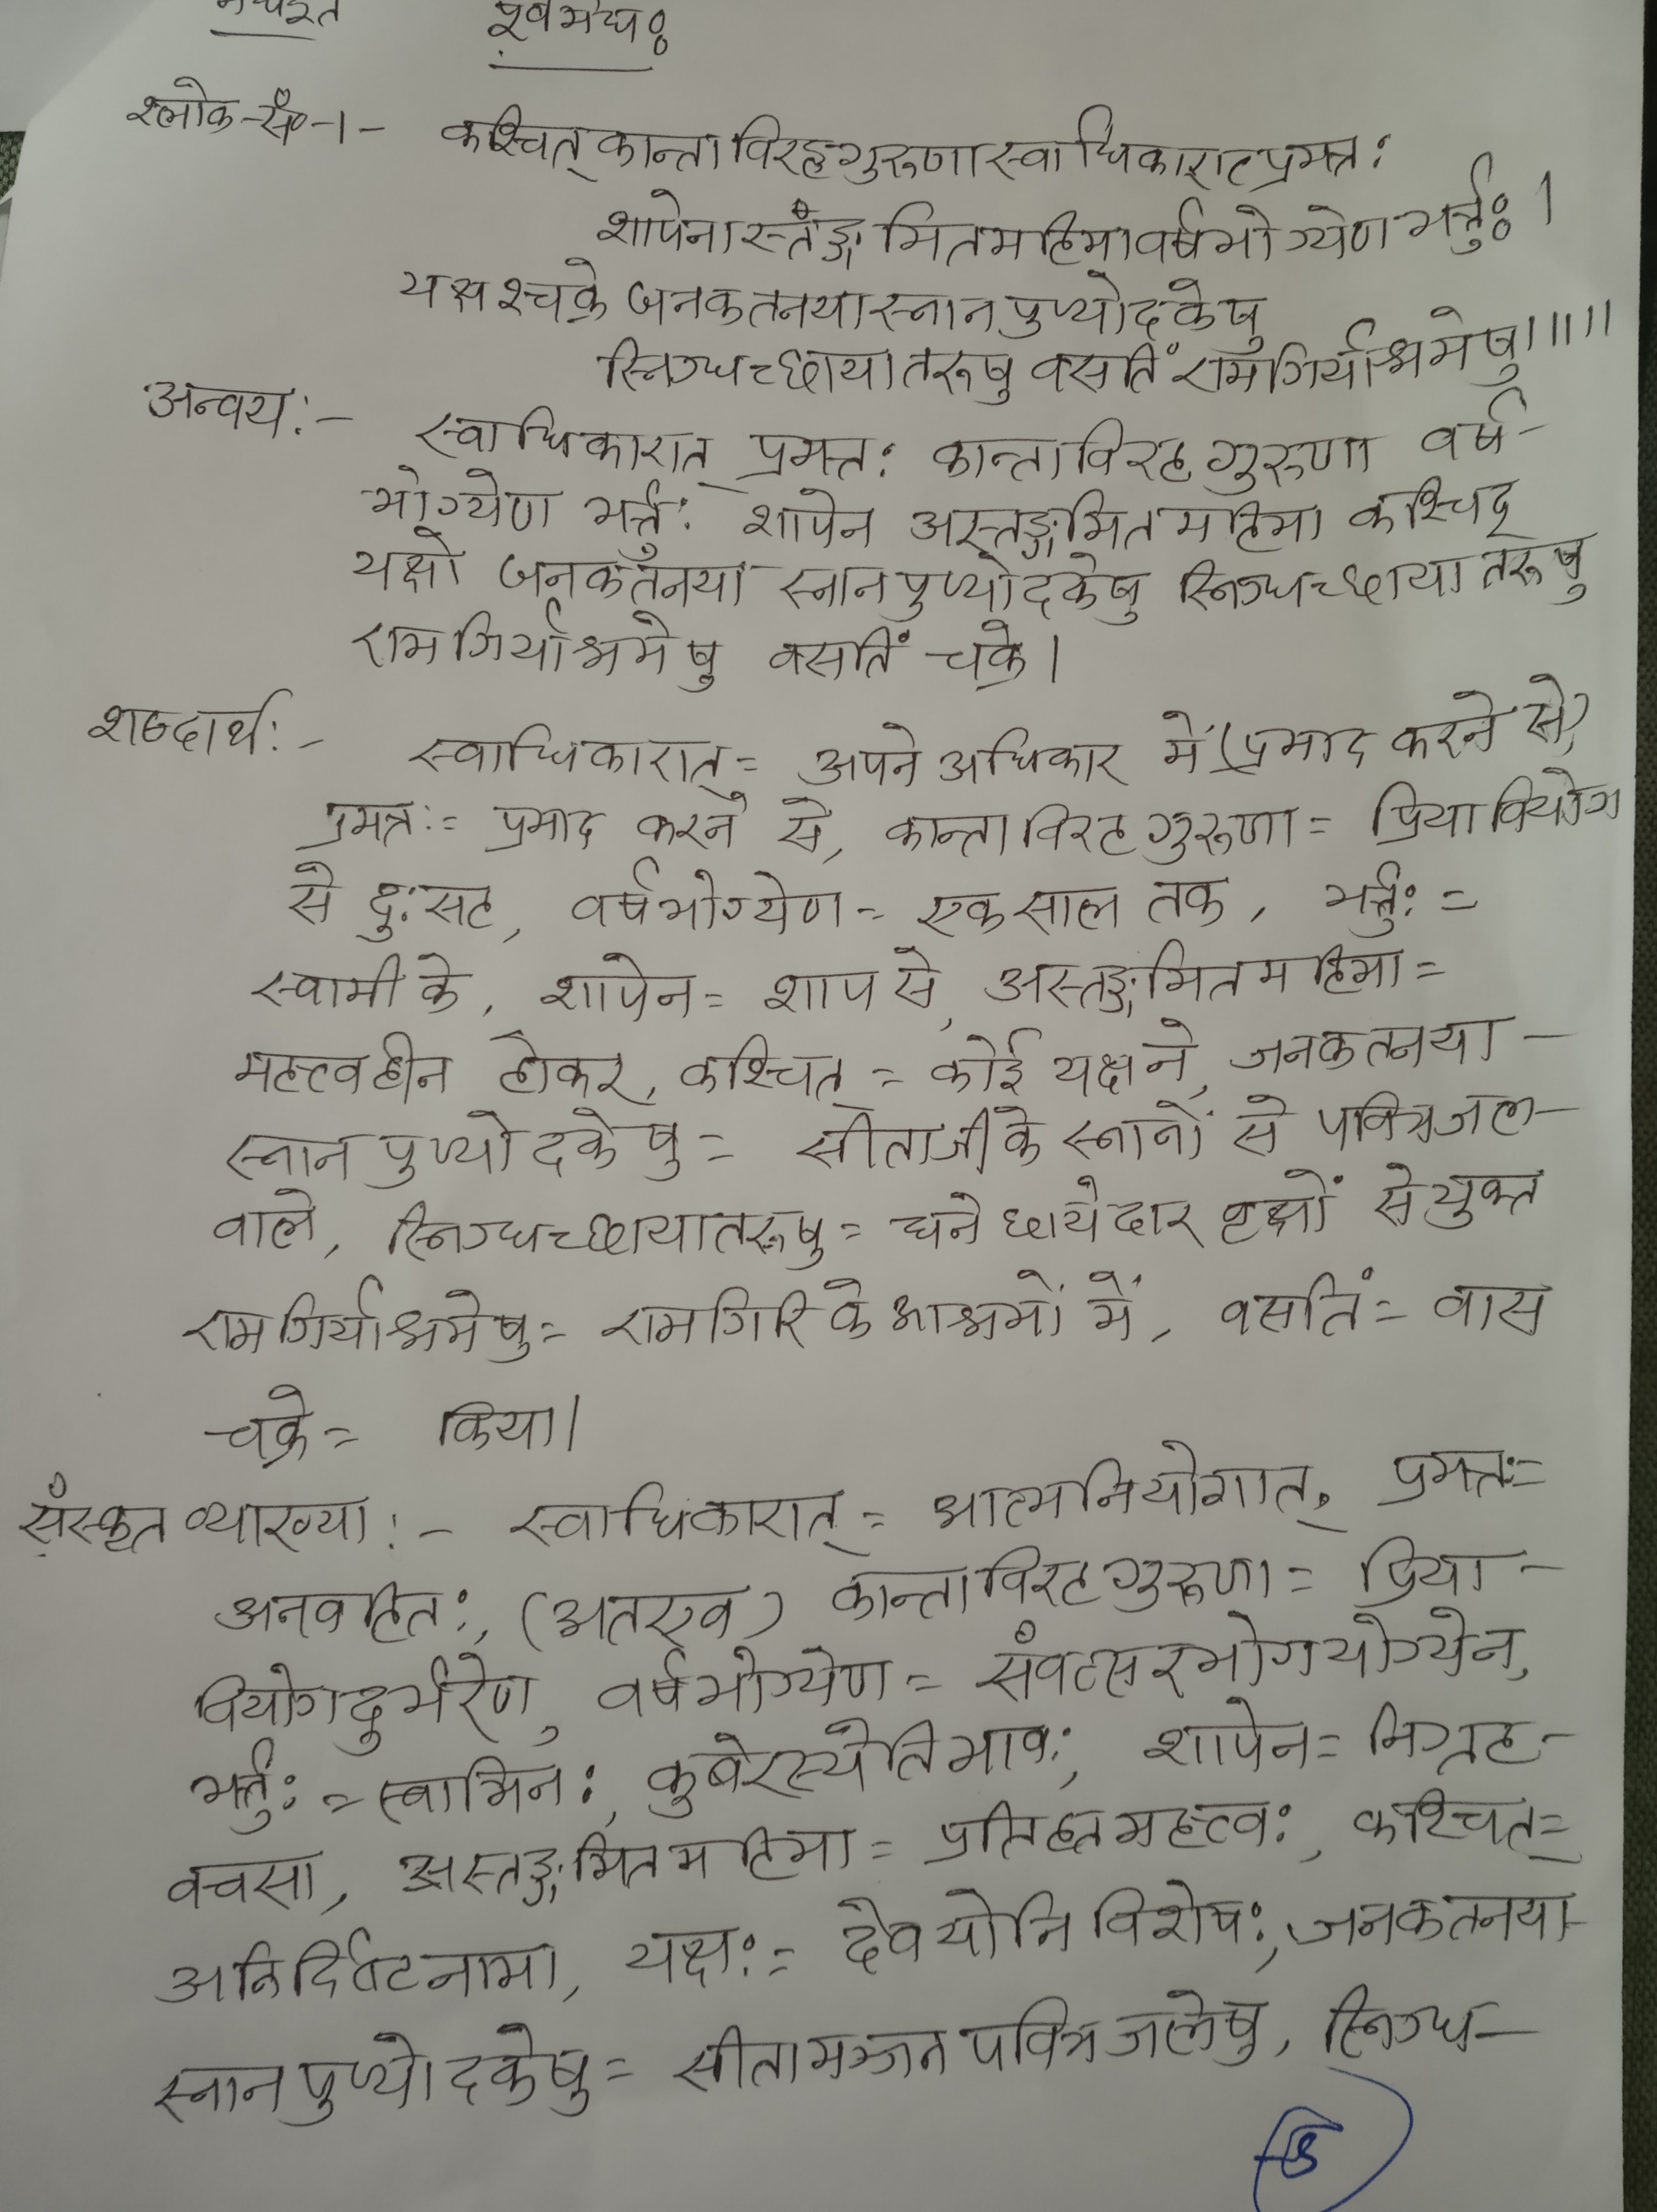 पूर्वमेघः
श्लोक-सं०-1- कश्चित् कान्ताविरहगुरुणा स्वाधिकारात्प्रमत्तः
शापेनास्तंङ्गमितमहिमा वर्षभोग्येण भर्त्तुः ।
यक्षश्चक्रे जनकतनयास्नानपुण्योदकेषु
स्निग्धच्छायातरूषु वसतिं रामगिर्याश्रमेषु ।।1।।
अन्वयः- स्वाधिकारात् प्रमत्तः कान्ताविरहगुरुणा वर्ष-
भोग्येण भर्त्तुः शापेन अस्तङ्गमितमहिमा कश्चिद्
यक्षो जनकतनया स्नानपुण्योदकेषु स्निग्धच्छायातरूषु
रामगिर्याश्रमेषु वसतिं चक्रे।
शब्दार्थः- स्वाधिकारात् = अपने अधिकार में (प्रमाद करने से)
प्रमत्तः = प्रमाद करने से, कान्ताविरहगुरुणा = प्रियावियोग
से दुःसह, वर्षभोग्येण = एक साल तक, भर्त्तुः =
स्वामी के, शापेन = शाप से, अस्तङ्गमितमहिमा =
महत्त्वहीन होकर, कश्चित् = कोई यक्ष ने, जनकतनया-
स्नानपुण्योदकेषु = सीताजी के स्नानों से पवित्रजल-
वाले, स्निग्धच्छायातरूषु = घने छायेदार वृक्षों से युक्त
रामगिर्याश्रमेषु = रामगिरि के आश्रमों में, वसतिं = वास
चक्रे = किया।
संस्कृत व्याख्या:- स्वाधिकारात् = आत्मनियोगात्, प्रमत्तः =
अनवहितः, (अतएव) कान्ताविरहगुरूणा = प्रिया-
वियोगदुर्भरेण, वर्षभोग्येण = संवत्सरभोगयोग्येन,
भर्त्तुः = स्वामिनः, कुबेरस्येतिभावः, शापेन = निग्रह-
वचसा, अस्तङ्गमितमहिमा = प्रतिहतमहत्त्वः, कश्चित् =
अनिर्दिष्टनामा, यक्षः = देवयोनिविशेषः, जनकतनया-
स्नानपुण्योदकेषु = सीतामज्जनपवित्रजलेषु, स्निग्ध-